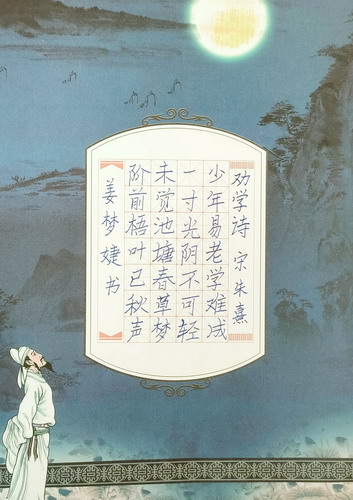 劝学诗 宋 朱熹
少年易老学难成
一寸光阴不可轻
未觉池塘春草梦
阶前梧叶已秋声
姜梦婕书